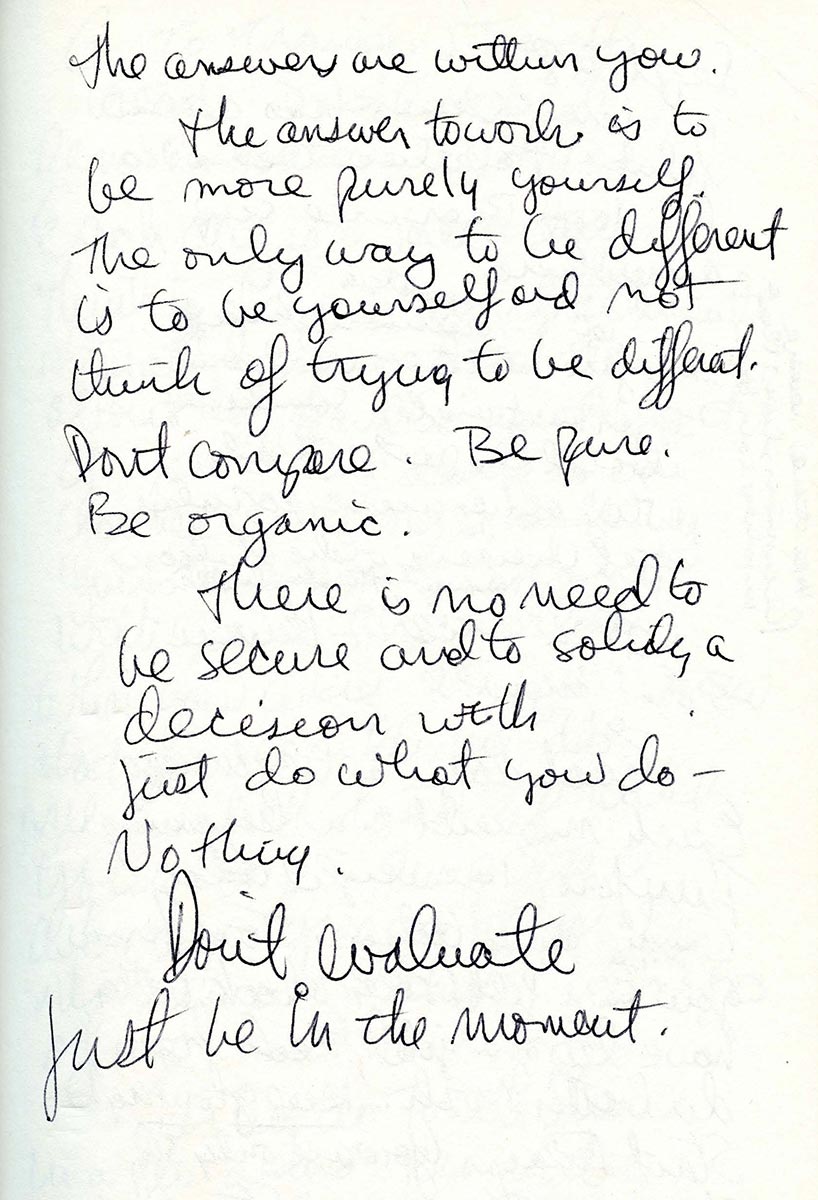 The answers are within you.
The answer to work is to
be more purely yourself.
The only way to be different
is to be yourself and not
think of trying to be different.
Don't compare. Be pure.
Be organic.
There is no need to
be secure and to solidy a
decision with
Just do what you do —
Nothing.
Don't evaluate
Just be in the moment.